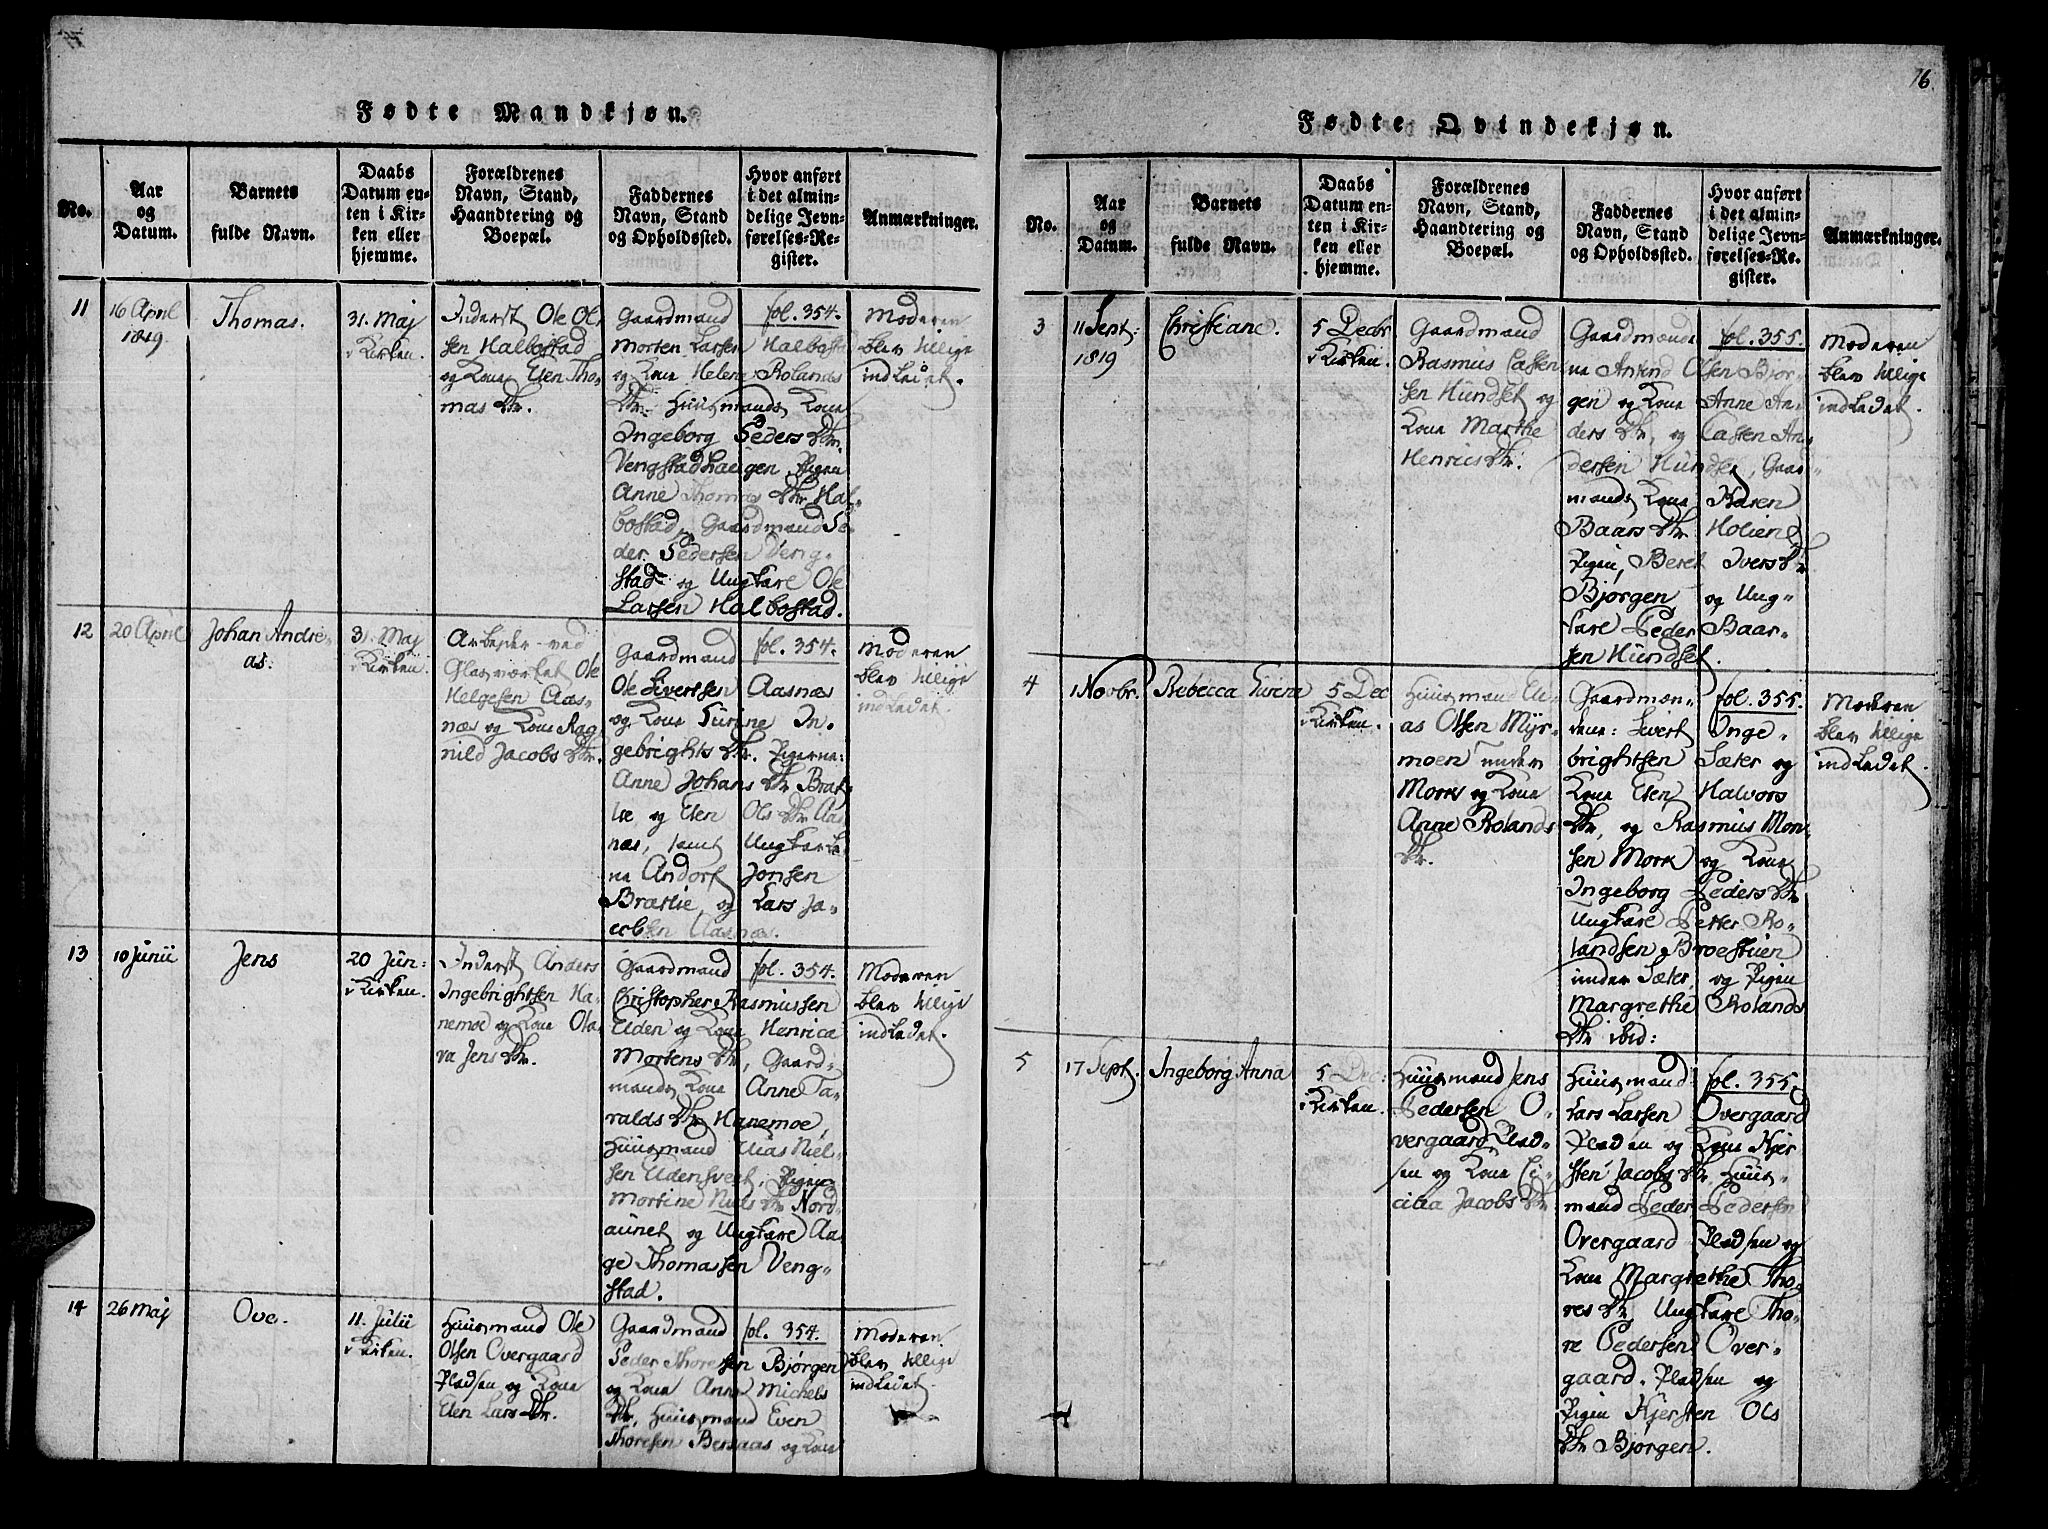 Fødte Mandkjøn.
No.
Aar
og
Datum.
Barnets
fulde Navn.
Daabs
Datum en-
ten i Kir-
ken eller
hjemme.
Forældrenes
Navn, Stand,
Haandtering og
Boepæl.
Faddernes
Navn, Stand
og Opholdssted.
Hvor anført
i det almin-
delige Jevn-
førelses-Re-
gister.
Anmærkninger.
11
16 April
1819.
Thomas.
31. Maj
i Kirken.
Inderst Ole Ol-
sen Halbostad
og Kone Elen Tho-
mas Dtr.
Gaardmand
Morten Larsen Halbosta
og Kone Helene Rolands
Dtr. Huusmands Kone
Ingeborg Peders Dtr.
Vengstadhaugen Pigen
Anne Thomas Dtr Hal-
bostad, Gaardmand Pe-
der Pedersen Veng-
stad og Ungkarl Ole
Larsen Halbostad.
fol. 354.
Moderen
blev tillige
indledet.
12
20 April
Johan Andre-
as.
31. Maj
i Kirken.
Arbejder ved
Glasværket Ole
Helgesen Aas-
næs og Kone Rag-
nild Jacobs Dtr.
Gaardmand
Ole Sivertsen Aasnæs
og Kone Gurine In-
gebrights Dtr. Pigerne:
Anne Johans Dtr Brat-
lie og Elen Ols Dtr Aas-
næs, samt Ungkarle-
ne Andorf Jonsen
Bratlie og Lars Ja-
cobsen Aasnæs.
fol. 354.
Moderen
blev tillige
indledet.
13
10 Junii
Jens
20 Jun:
i Kirken.
Inderst Anders
Ingebrightsen Ha-
nemoe og Kone Ola-
va Jens Dtr.
Gaardmand
Christopher Rasmussen
Elden og Kone Henrica
Mortens Dtr, Gaard-
mands Kone Anne Ta-
ralds Dtr Hanemoe,
Huusmand Elias Niel-
sen Eldensveet, Pigen
Mortine Niels Dtr Nord-
aunet og Ungkarl Aa-
ge Thomassen Veng-
stad.
fol. 354.
Moderen
blev tillige
indledet.
14
26 Maj
Ove.
11. Julii
i Kirken.
Huusmand Ole
Olsen Overgaard
Pladsen og Kone
Elen Lars Dtr.
Gaardmand
Peder Thoresen Bjørgen
og Kone Anne Michels
Dtr, Huusmand Even
Thoresen Bersaas og Kone
fol. 354.
Moderen
blev tillige
indledet.
16.
Fødte Qvindekjøn.
No.
Aar
og
Datum.
Barnets
fulde Navn.
Daabs
Datum en-
ten i Kir-
ken eller
hjemme.
Forældrenes
Navn, Stand,
Haandtering og
Boepæl.
Faddernes
Navn, Stand
og Opholdssted.
Hvor anført
i det almin-
delige Jevn-
førelses-Re-
gister.
Anmærkninger.
3
11 Sept:
1819
Christiane.
5 Decbr
i Kirken.
Gaardmand
Rasmus Casten-
sen Hundset og
Kone Marthe
Henrics Dtr.
Gaardmænde-
ne Arnind Olsen Bjør-
gen og Kone Anne An-
ders Dtr, og Casten An-
dersen Hundset, Gaar-
mands Kone Karen
Baars Dtr Holien
Pigen, Beret Ivers Dtr
Bjørgen og Ung-
karl Peder Baar-
sen Hundset.
fol. 355.
Moderen
blev tillige
indledet.
4
1 Novbr.
Rebecca Gurine
5 Dec
i Kirken.
Huusmand Eli-
as Olsen Myr-
moen under
Mork og Kone
Anne Rolands
Dtr.
Gaardmæn-
dene: Sivert Inge-
brightsen Sæter og
Kone Elen Halvors
Dtr, og Rasmus Mon-
sen Mork og Kone
Ingeborg Peders Dtr
Ungkarl Petter Ro-
landsen Broestuen
under Sæter, og Pigen
Margrethe Rolands
Dtr ibid:
fol. 355.
Moderen
blev tillige
indledet.
5
17 Sept.
Ingeborg Anna
5 Dec:
i Kirken.
Huusmand Jens
Pedersen O-
vergaard Plad-
sen og Kone Ci-
cilia Jacobs Dtr
Huusmand
Lars Larsen Overgaard
Pladsen og Kone Kjer-
sten Jacobs Dtr, Huus-
mand Peder Pedersen
Overgaard Pladsen og
Kone Margrethe Tho-
res Dtr Ungkarl Tho-
re Pedersen Over-
gaard. Pladsen og
Pigen Kjersten Ols
Dtr Bjørgen.
fol. 355.